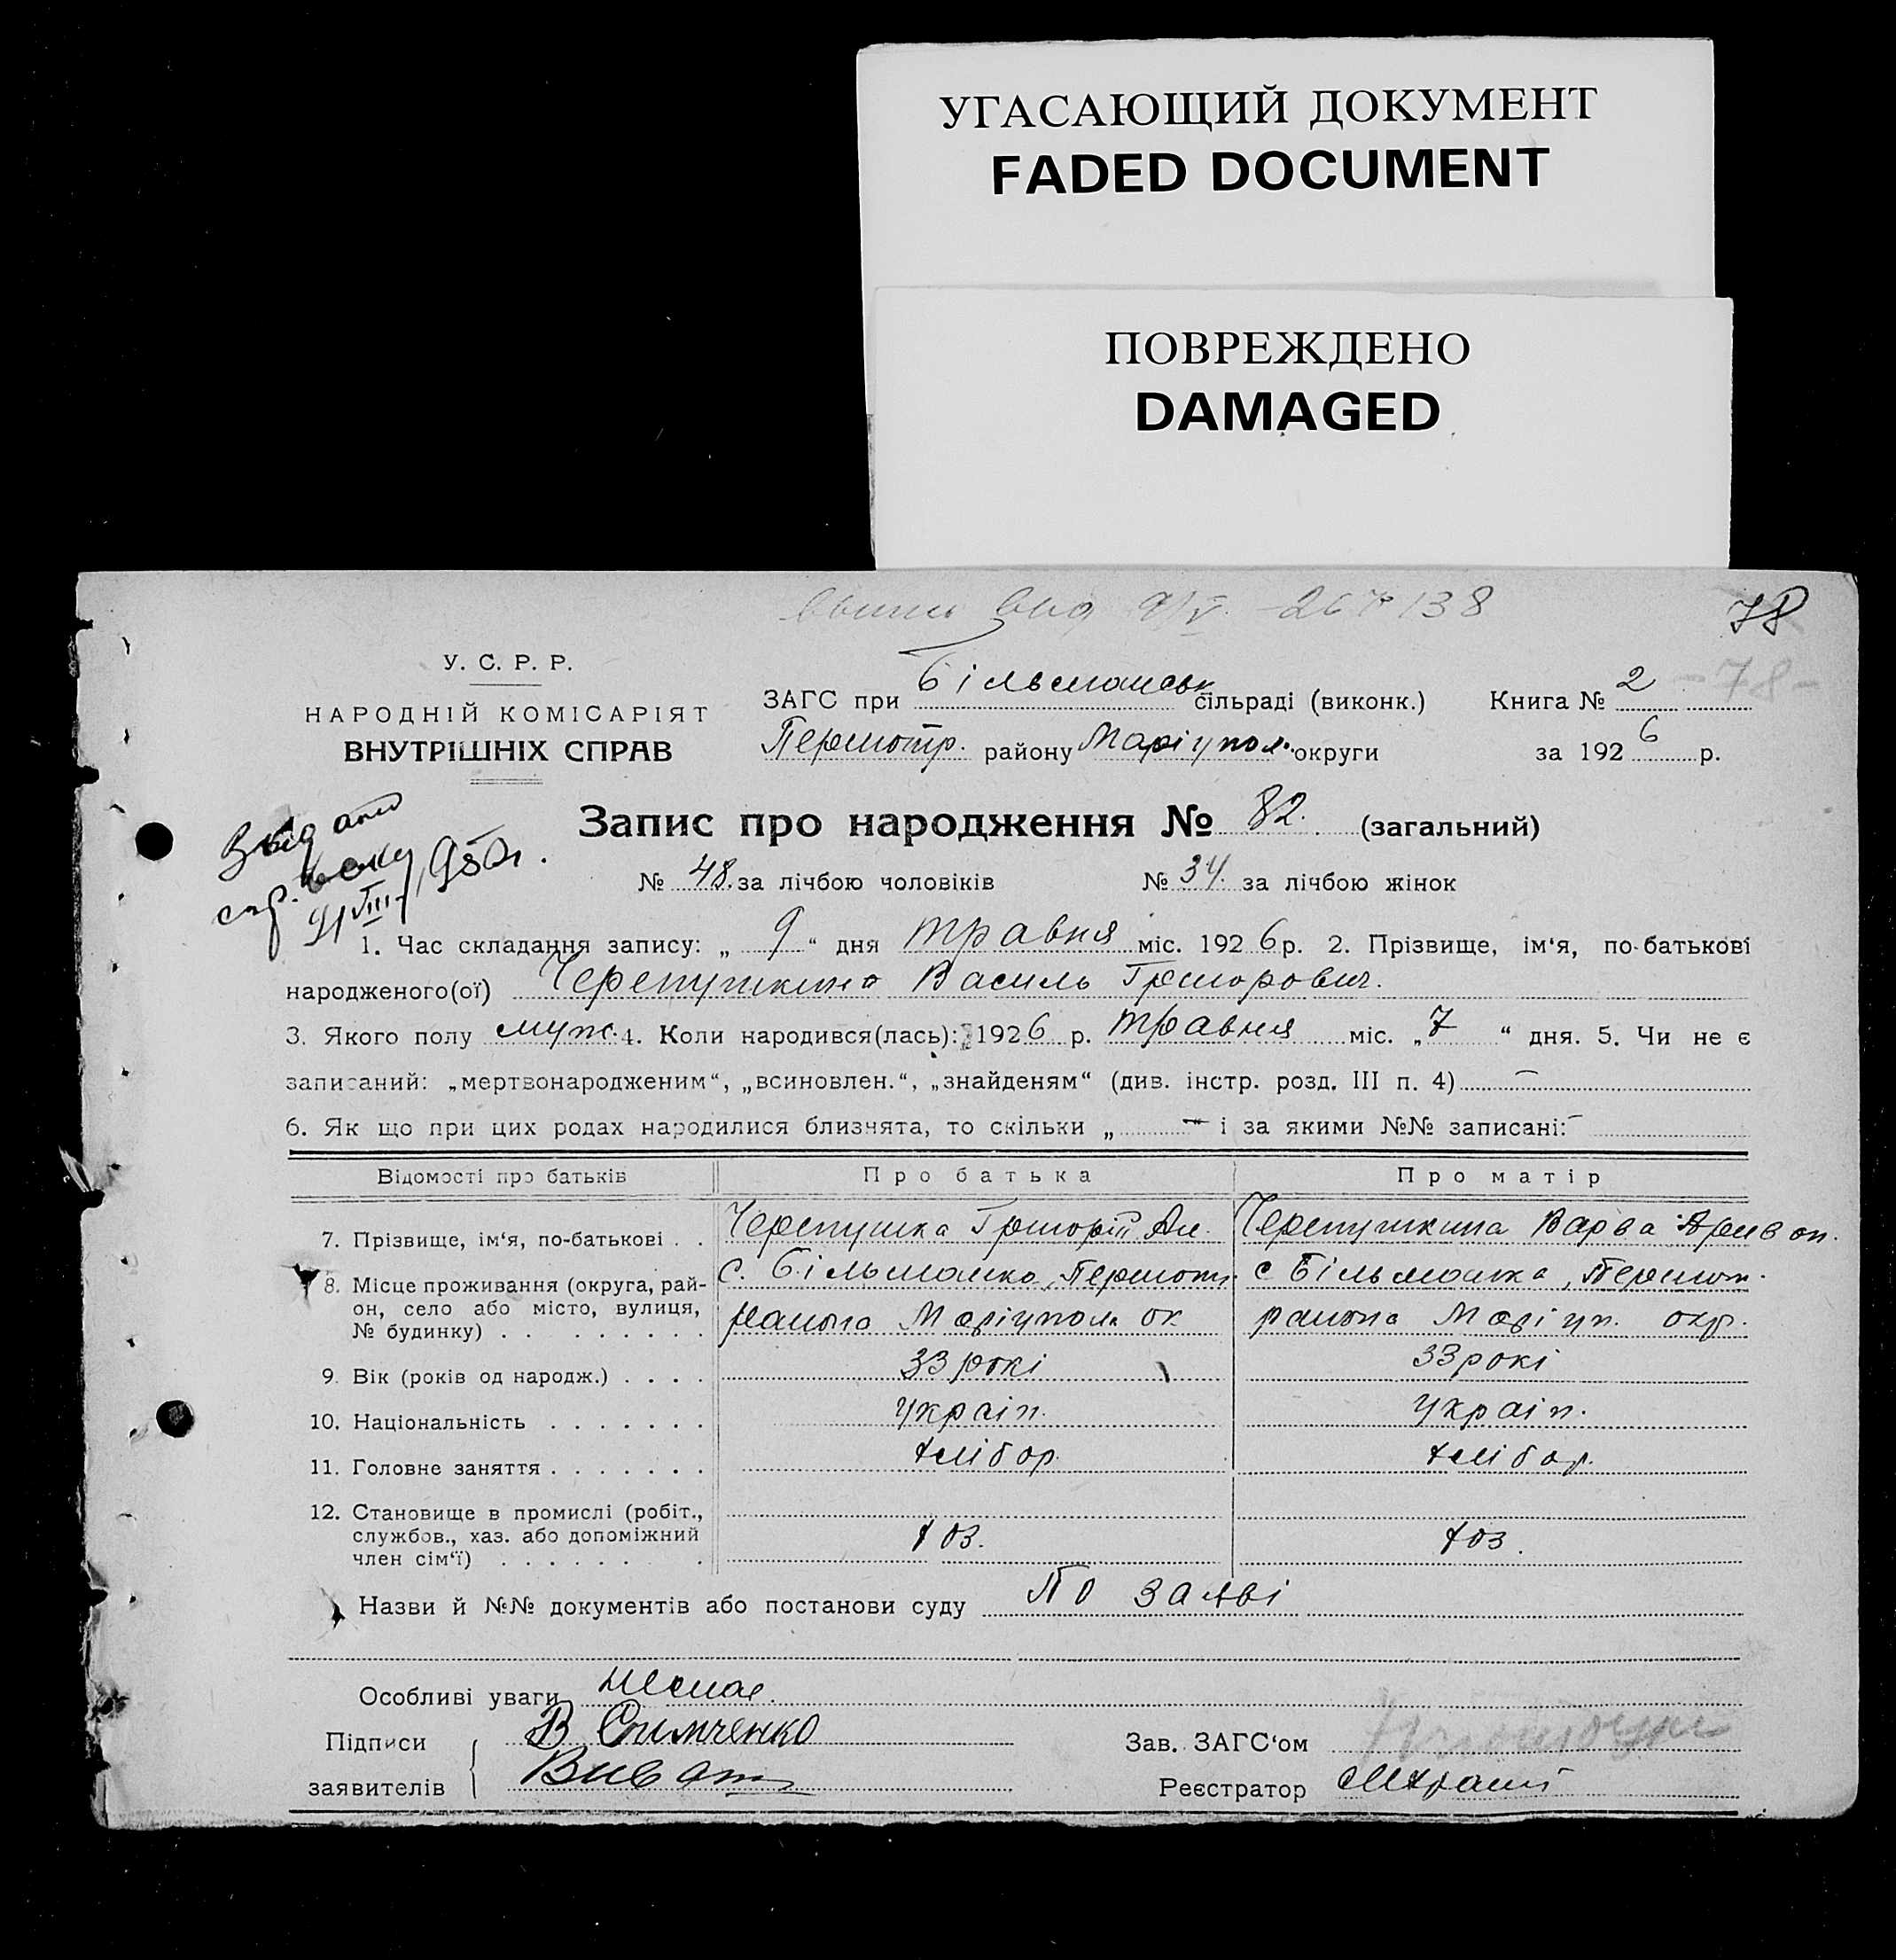 УГАСАЮЩИЙ ДОКУМЕНТ
FADED DOCUMENT
ПОВРЕЖДЕНО
DAMAGED
138
78
- 78 -
У. С. Р. Р.
НАРОДНІЙ КОМІСАРІЯТ
ВНУТРІШНІХ СПРАВ
ЗАГС при Більманськ сільраді (виконк.) Книга № 2
району Маріупол. округи за 192 6 р.
Запис про народження № 82. (загальний)
№ 48. за лічбою чоловіків № 34. за лічбою жінок
1. Час складання запису: „ 9 “ дня травня міс. 192 6 р. 2. Прізвище, ім‘я, по-батькові
народженого(ої) Василь Григорович.
3. Якого полу муж. 4. Коли народився(лась): 192 6 р. травня міс. „ 7 “ дня. 5. Чи не є
записаний: „мертвонародженим“, „всиновлен.“, „знайденям“ (див. інстр. розд. III п. 4) —
6. Як що при цих родах народилися близнята, то скільки „ — і за якими №№ записані: —
Відомості про батьків Про батька Про матір
7. Прізвище, ім‘я, по-батькові . . Черепушка Григорій Черепушкина
8. Місце проживання (округа, рай-
он, село або місто, вулиця,
№ будинку) . . . . . . . . .
с. Більманка,
Маріупол ок
с Більманка,
района Маріуп. окр.
9. Вік (років од народж.) . . . . 33 рокі 33 рокі
10. Національність . . . . . . . україн. україн.
11. Головне заняття . . . . . . . хлібор. хлібор.
12. Становище в промислі (робіт.,
службов., хаз. або допоміжний
член сім‘ї) . . . . . . . .
хоз. хоз.
Назви й №№ документів або постанови суду По заяві
Особливі уваги немає.
Підписи
заявителів
Зав. ЗАГС‘ом
Реєстратор